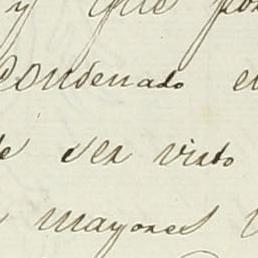 y que por
condenado e
de ser visto
mayores